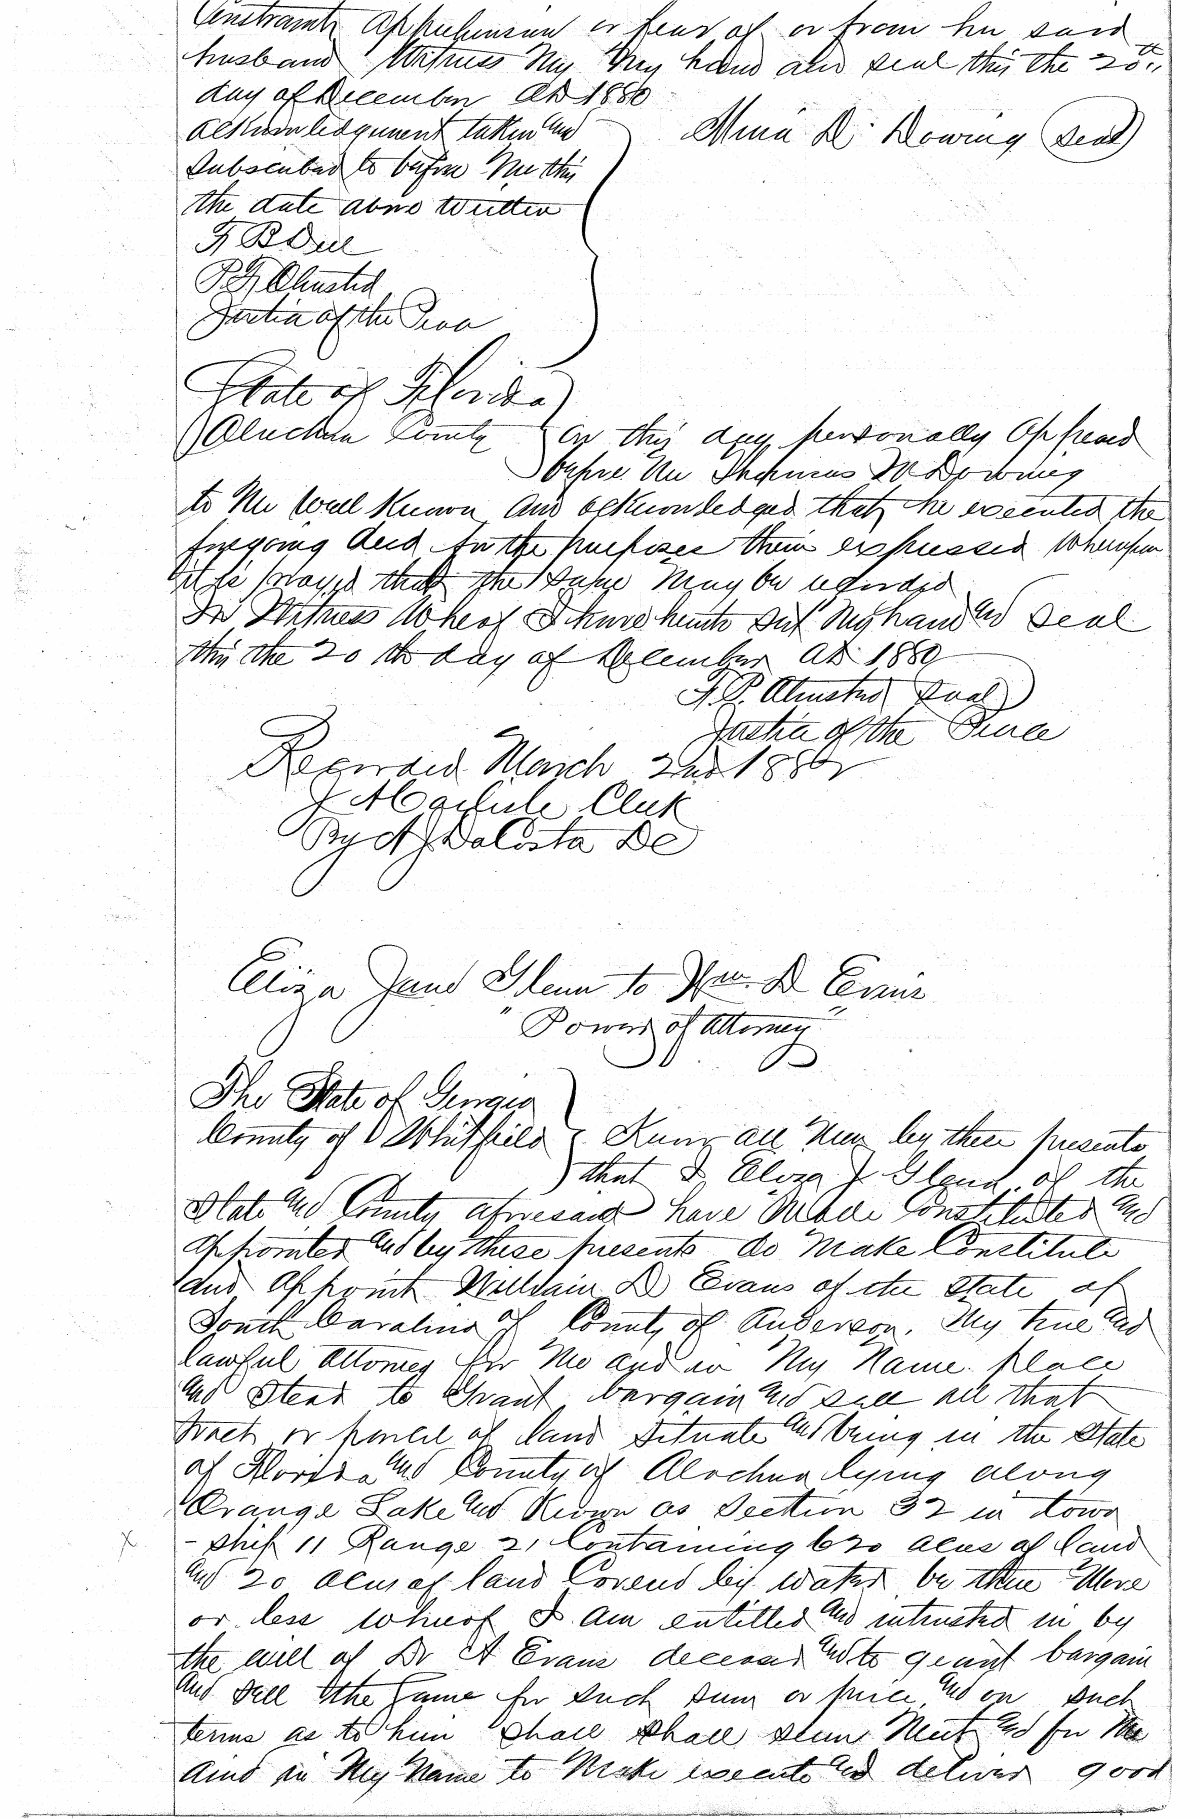 Constraint apprehension or fear of or from her said
husband Witness My My hand and seal this the 20th
day of December AD 1880
acknowledgement taken and
Subscribed to before Me this
the date above written
Mina D. Dowing Seal
F B
P F Olmsted
Justice of the Peace
State of Florida
Alachua County On this day personally appeared
before Me Thomas W Downing
to Me Well Known and acknowledged that he executed the
foregoing deed for the purposes therein expressed Whereupon
it is prayed that the same May be recorded
In Witness Whereof I have hereto set My hand and Seal
this the 20th day of December AD 1880
F. P. Olmsted Seal
Justice of the Peace
Recorded March 2nd 1882
J A Carlisle Clerk
By A J DaCosta DC
Eliza Jane Glenn to Wm. D Evans
"Power of Attorney"
The State of Georgia
County of Whitfield Know all Men by these presents
that I, Eliza J. Glenn, of the
State and County aforesaid have Made Constituted and
appointed and by these presents do Make Constitute
and appoint William D Evans of the State of
South Carolina of County of Anderson. My true and
lawful Attorney for Me and in My Name place
and Stead to Grant bargain and sell all that
tract or parcel of land Situate and being in the State
of Florida and County of Alachua lying along
Orange Lake and Known as Section 32 in town
- ship 11 Range 21 Containing 620 acres of land
and 20 acres of land Covered by water be there More
or less whereof I am entitled and intrusted in by
the will of Dr A Evans deceased and to grant bargain
and Sell the Same for such sum or price, and on such
terms as to him shall shall seem Meet and for Me
and in My Name to Make execute and deliver good